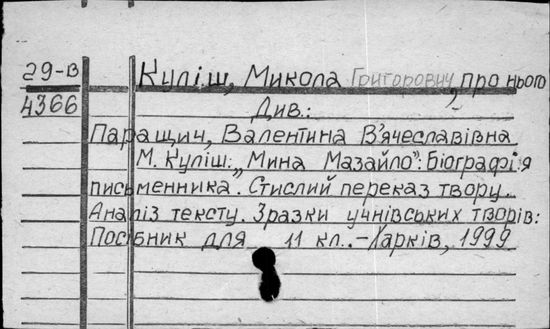 29-В
4366
Куліш, Микола Григорович, про нього
Див.:
Паращич, Валентина В'ячеславівна
М. Куліш: „Мина Мазайло": Біографія
письменника. Стислий переказ твору.
Аналіз тексту. Зразки учнівських творів:
Посібник для 11 кл. – Харків, 1999